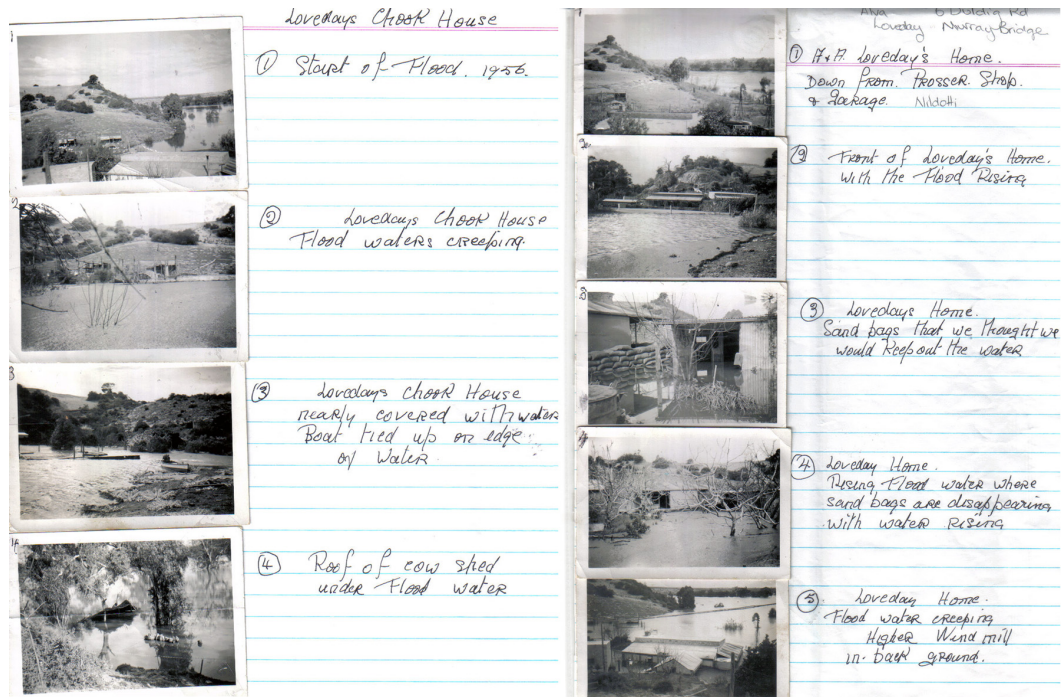 Lovedays Chook House
① Start of Flood. 1956.
② Lovedays Chook House
Flood waters creeping.
③ Lovedays Chook House
nearly covered with water
Boat tied up on edge
of Water.
④ Roof of cow shed
under Flood water
Alva
Loveday Murray Bridge
① A & A. Loveday's Home.
Down from Prosser. Shop.
& Garage. Nildotti
② Front of Loveday's Home.
with the Flood Rising
③ Lovedays Home.
Sand bags that we thought we
would keep out the water
④ Loveday Home.
Rising Flood water where
sand bags are disappearing
with water rising
⑤ Loveday Home.
Flood water creeping
Higher Wind mill
in back ground.